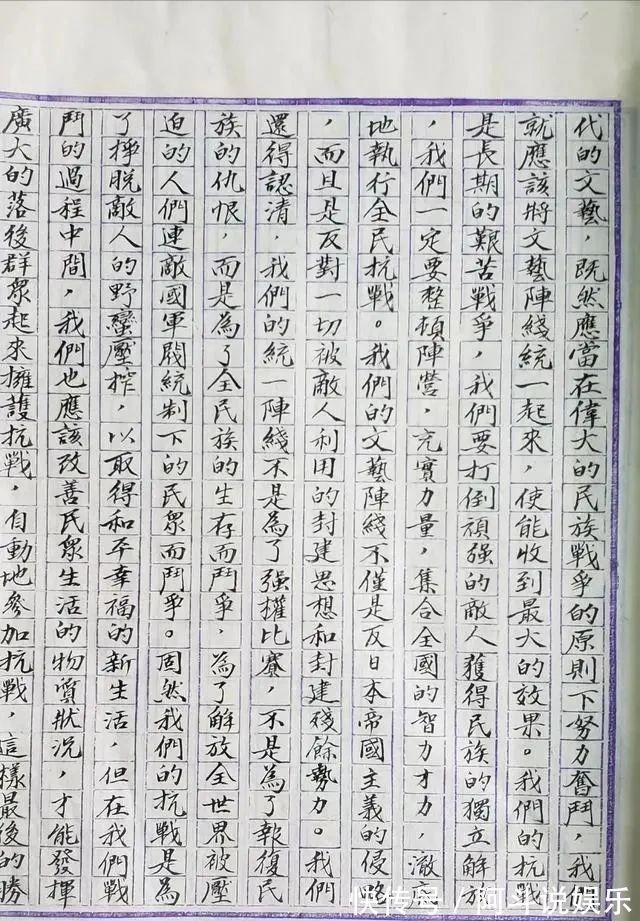 代的文藝，既然應當在偉大的民族戰爭的原則下努力奮鬥，我們
就應該將文藝陣綫統一起來，使能收到最大的效果。我們的抗戰
是長期的艱苦戰爭，我們要打倒頑強的敵人獲得民族的獨立解放
，我們一定要整頓陣營，充實力量，集合全國的智力才力，澈底
地執行全民抗戰。我們的文藝陣綫不僅是反日本帝國主義的侵略
，而且是反對一切被敵人利用的封建思想和封建殘餘勢力。我們
還得認清，我們的統一陣綫不是為了強權比賽，不是為了報復民
族的仇恨，而是為了全民族的生存而鬥爭，為了解放全世界被壓
迫的人們連敵國軍閥統制下的民眾而鬥爭。固然我們的抗戰是為
了掙脫敵人的野蠻壓搾，以取得和平幸福的新生活，但在我們戰
鬥的過程中間，我們也應該改善民眾生活的物質狀況，才能發揮
廣大的落後群眾起來擁護抗戰，自動地參加抗戰，這樣最後的勝
快传号 / 阿斗说娱乐